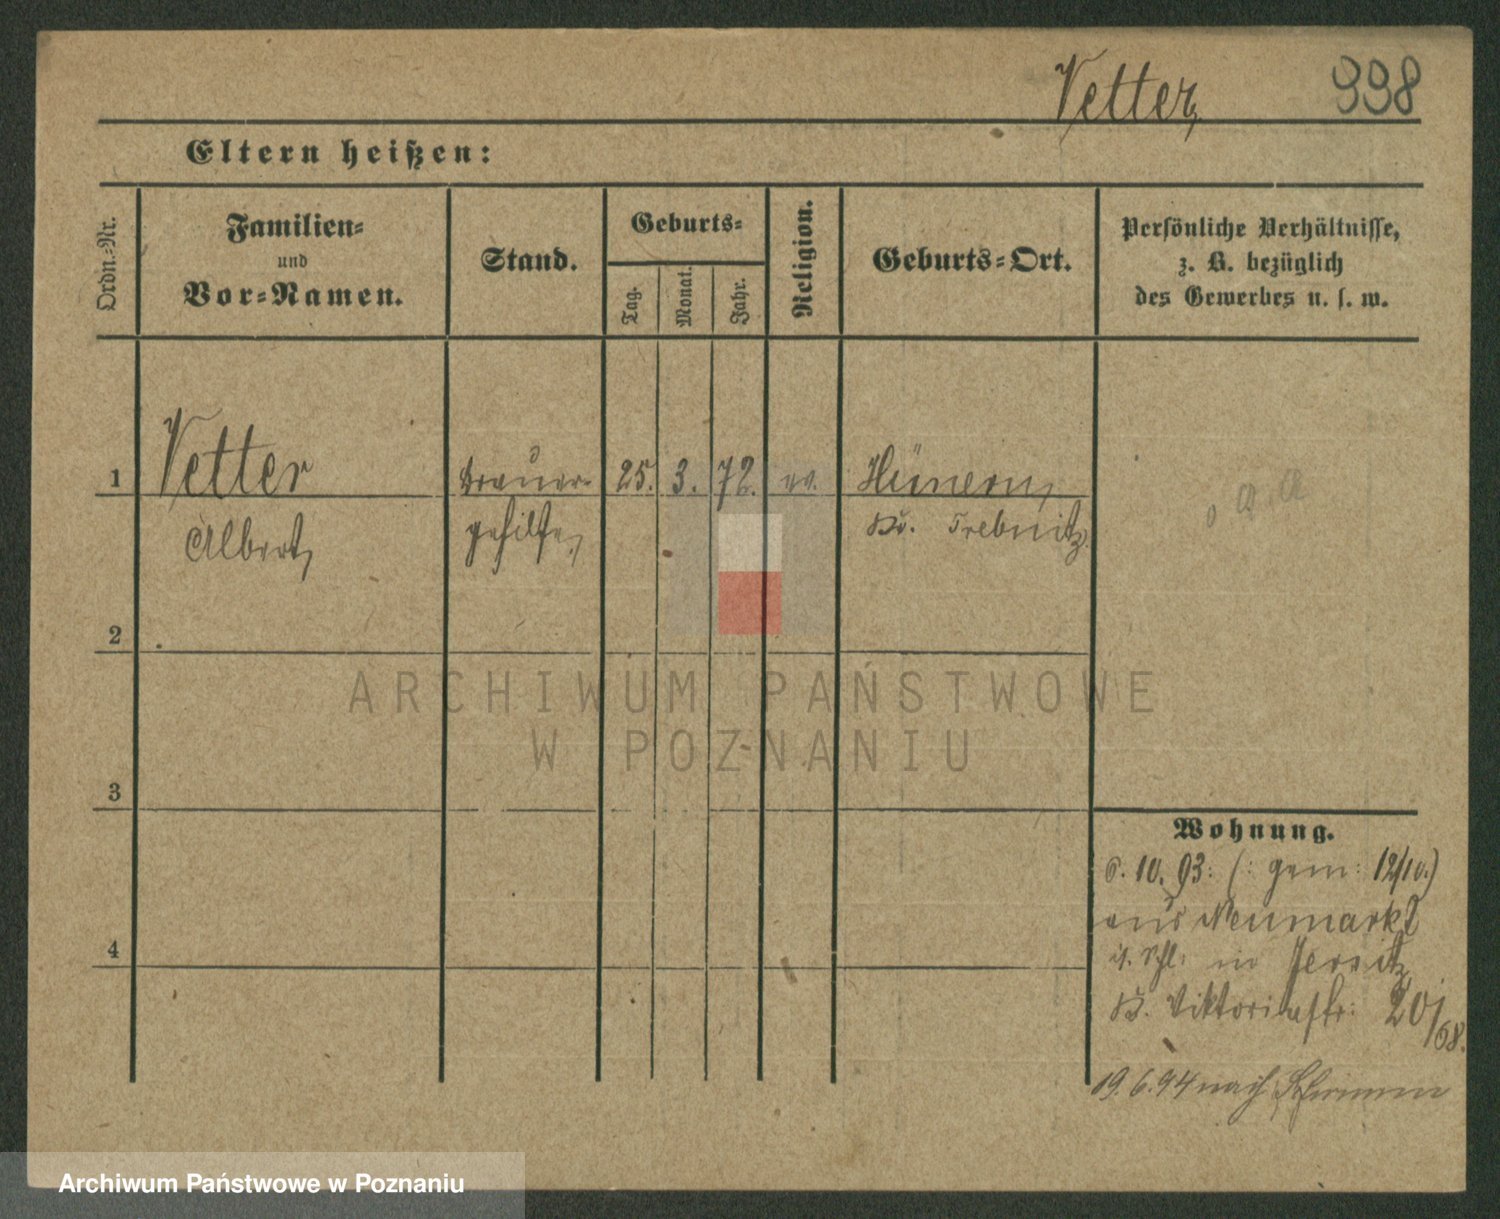 Vetter,
998
Eltern heißen:
Ordn.-Nr.
Familien-
und
Vor-Namen.
Stand.
Geburts-
Tag.
Monat.
Jahr.
Religion.
Geburts-Ort.
Persönliche Verhältnisse,
z. B. bezüglich
des Gewerbes u. s. w.
1
Vetter
Brauer-
25. 3. 72.
ev.
Hünern,
Albert,
gehilfe,
Kr. Trebnitz.
2
3
4
Wohnung.
6. 10. 93. (: gem: 12/10.)
aus Neumarkt
i. Schl: in Jersitz
Viktoriastr: 20/
68.
19. 6. 94 nach
ARCHIWUM PAŃSTWOWE
W POZNANIU
Archiwum Państwowe w Poznaniu